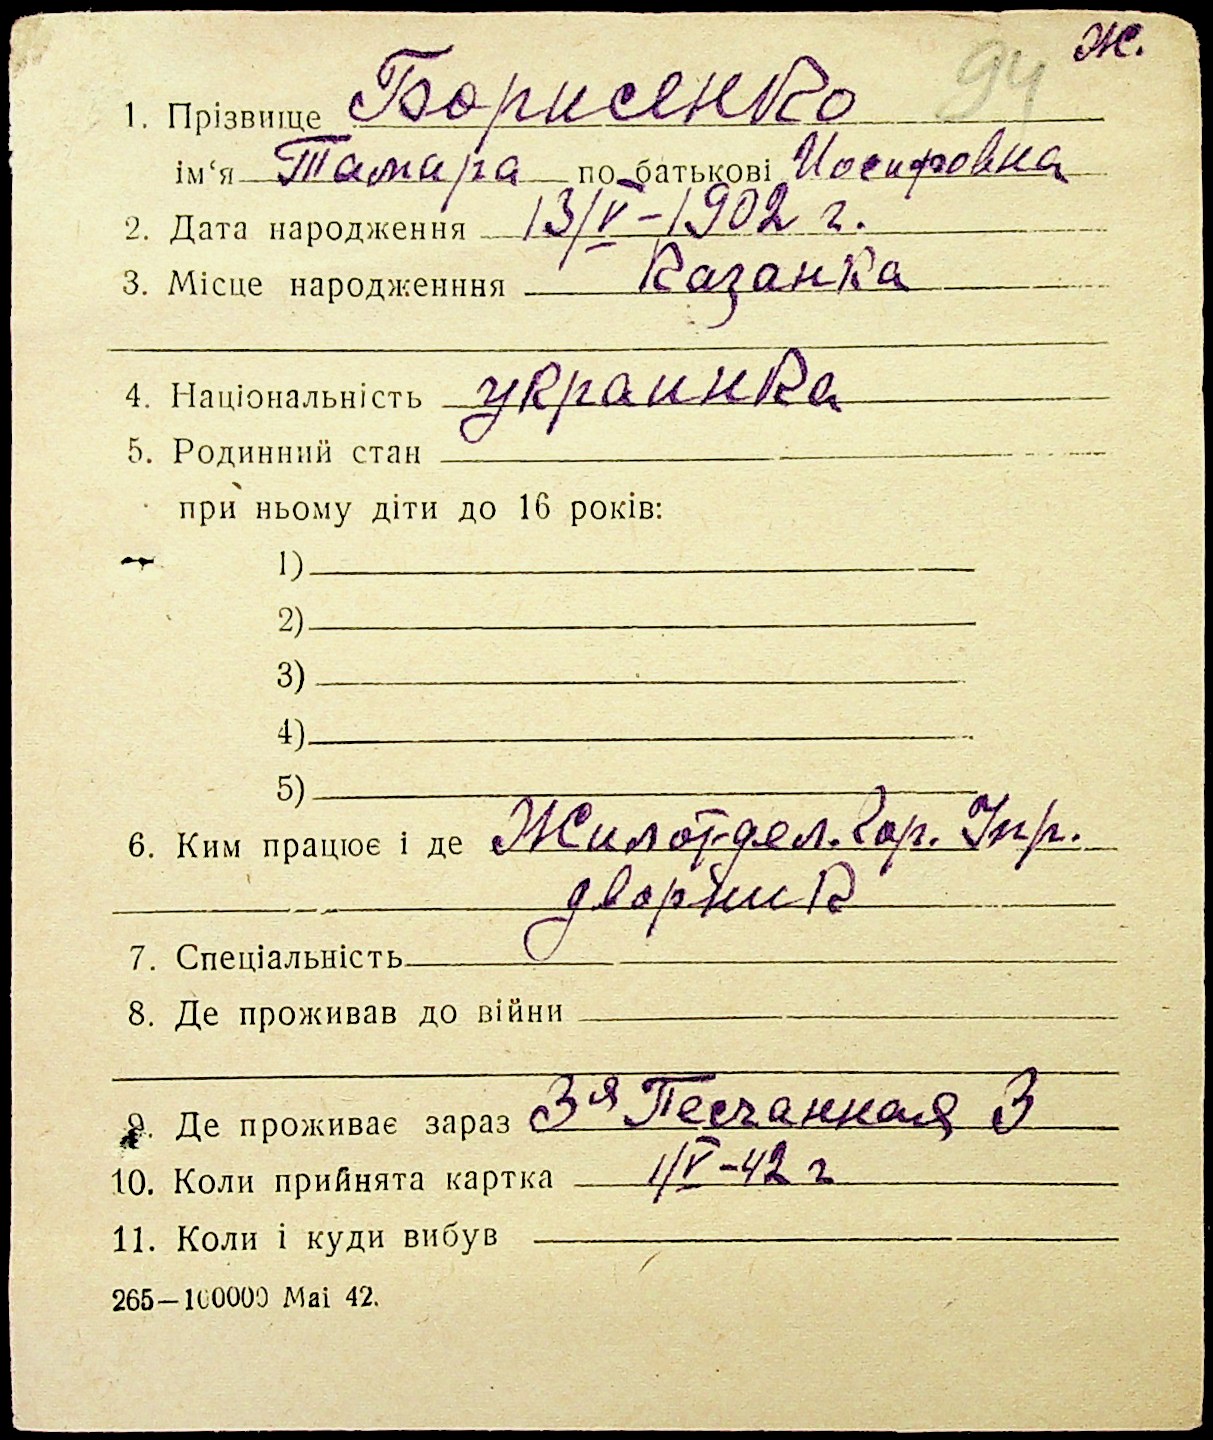 94 Ж.
1. Прізвище Борисенко
ім‘я Тамара по батькові Иосифовна
2. Дата народження 13/V-1902 г.
3. Місце народженння Казанка
4. Національність украинка
5. Родинний стан
при ньому діти до 16 років:
1)
2)
3)
4)
5)
6. Ким працює і де Жилотдел. Гор. Упр.
дворник
7. Спеціальність
8. Де проживав до війни
9. Де проживає зараз 3я Песчанная 3
10. Коли прийнята картка 1/V-42 г
11. Коли і куди вибув
265—100000 Mai 42.